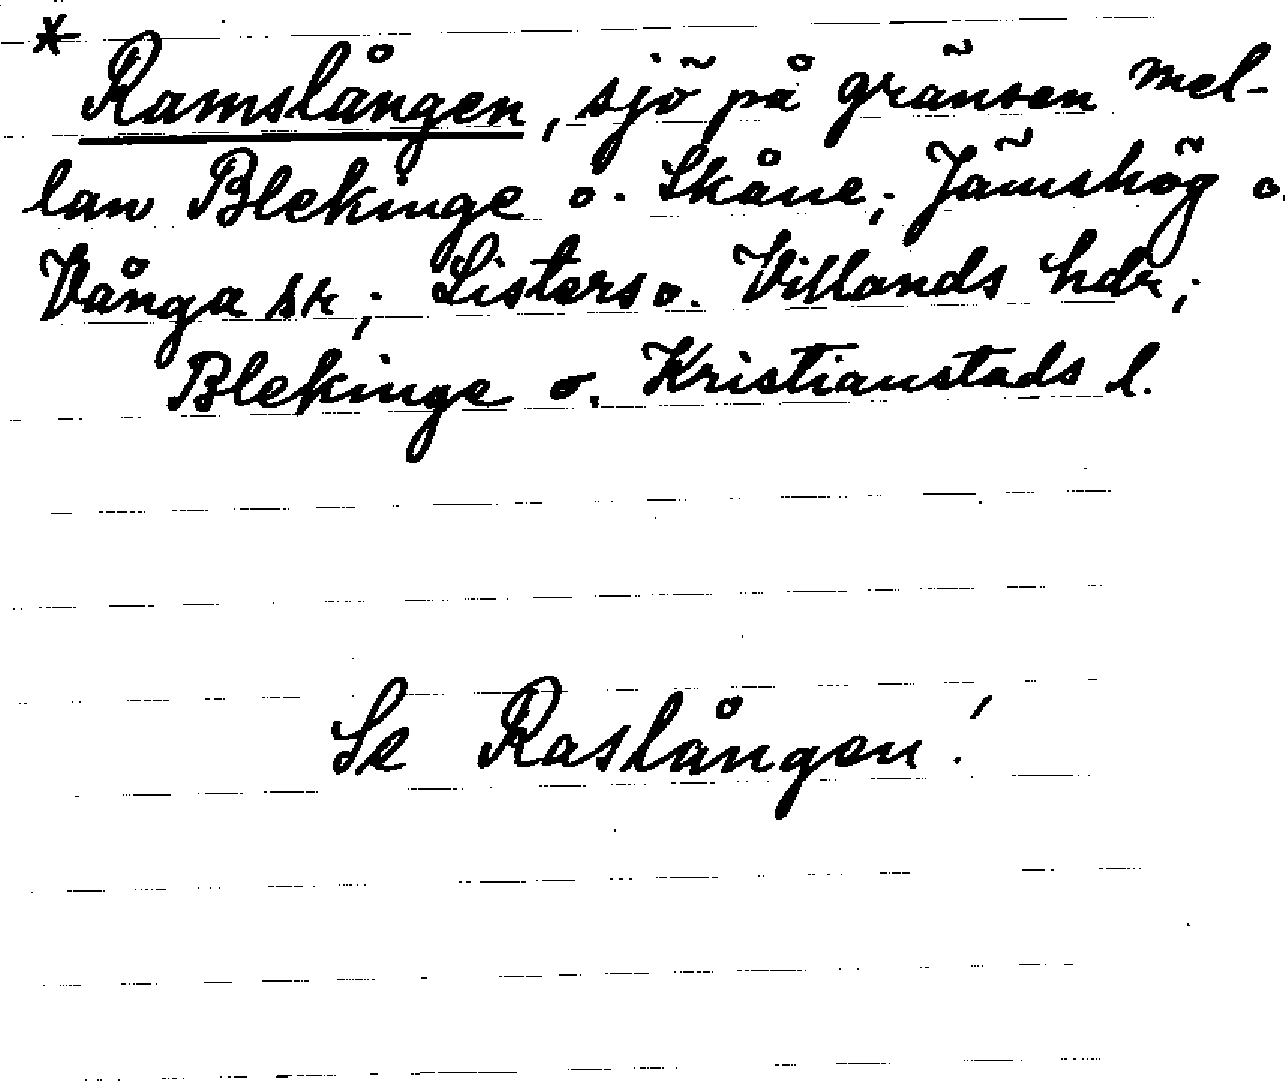 * Ramslången, sjö på gränsen mel-
lan Blekinge o. Skåne; Jämshög o.
Vånga sk; Listers o. Villands hdr;
Blekinge o. Kristianstads l.
Se Raslången!